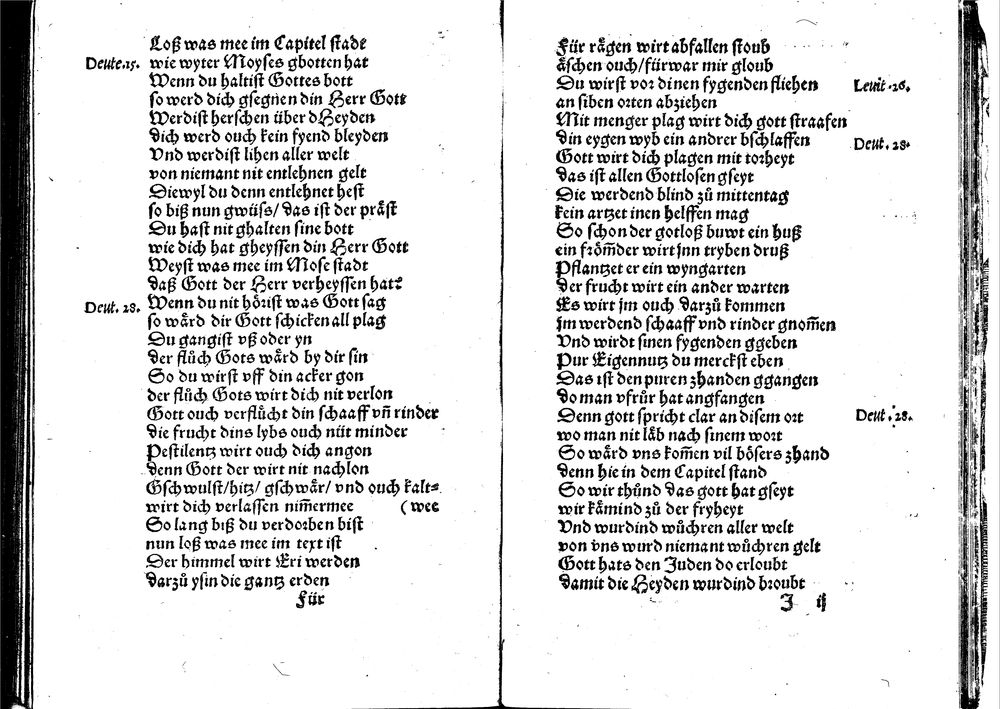 Loß was mee im Capitel stadt
Deute.15. wie wyter Moyses gbotten hat
Wenn du haltist Gottes bott
so werd dich gsegnen din Herr Gott
Werdist herschen über dHeyden
dich werd ouch kein fyend bleyden
Vnd werdist lihen aller welt
von niemant nit entlehnen gelt
Diewyl du denn entlehnet hest
so biß nun gwüss/ das ist der präst
Du hast nit ghalten sine bott
wie dich hat gheyssen din Herr Gott
Weyst was mee im Mose stadt
daß Gott der Herr verheyssen hat?
Deut. 28. Wenn du nit hörist was Gott sag
so wärd dir Gott schicken all plag
Du gangist vß oder yn
der flůch Gots wärd by dir sin
So du wirst vff din acker gon
der flůch Gots wirt dich nit verlon
Gott ouch verflůcht din schaaff vñ rinder
die frucht dins lybs ouch nüt minder
Pestilentz wirt ouch dich angon
denn Gott der wirt nit nachlon
Gschwulst/hitz/ gschwär/ vnd ouch kalt⸗
wirt dich verlassen nim̃ermee (wee
So lang biß du verdorben bist
nun loß was mee im text ist
Der himmel wirt Eri werden
darzů ysin die gantz erden
Für
Für rägen wirt abfallen stoub
äschen ouch/fürwar mir gloub
Du wirst vor dinen fygenden fliehen Levit .26.
an siben orten abziehen
Mit menger plag wirt dich gott straafen
din eygen wyb ein andrer bschlaffen Deut. 28.
Gott wirt dich plagen mit torheyt
das ist allen Gottlosen gseyt
Die werdend blind zů mittentag
kein artzet inen helffen mag
So schon der gotloß buwt ein huß
ein fröm̃der wirt jnn tryben druß
Pflantzet er ein wyngarten
der frucht wirt ein ander warten
Es wirt jm ouch darzů kommen
jm werdend schaaff vnd rinder gnom̃en
Vnd wirdt sinen fygenden ggeben
Pur Eigennutz du merckst eben
Das ist den puren zhanden ggangen
do man vfrůr hat angfangen
Denn gott spricht clar an disem ort Deut .28.
wo man nit läb nach sinem wort
So wärd vns kom̃en vil bösers zhand
denn hie in dem Capitel stand
So wir thůnd das gott hat gseyt
wir kämind zů der fryheyt
Vnd wurdind wůchren aller welt
von vns wurd niemant wůchren gelt
Gott hats den Juden do erloubt
damit die Heyden wurdind broubt
J ij